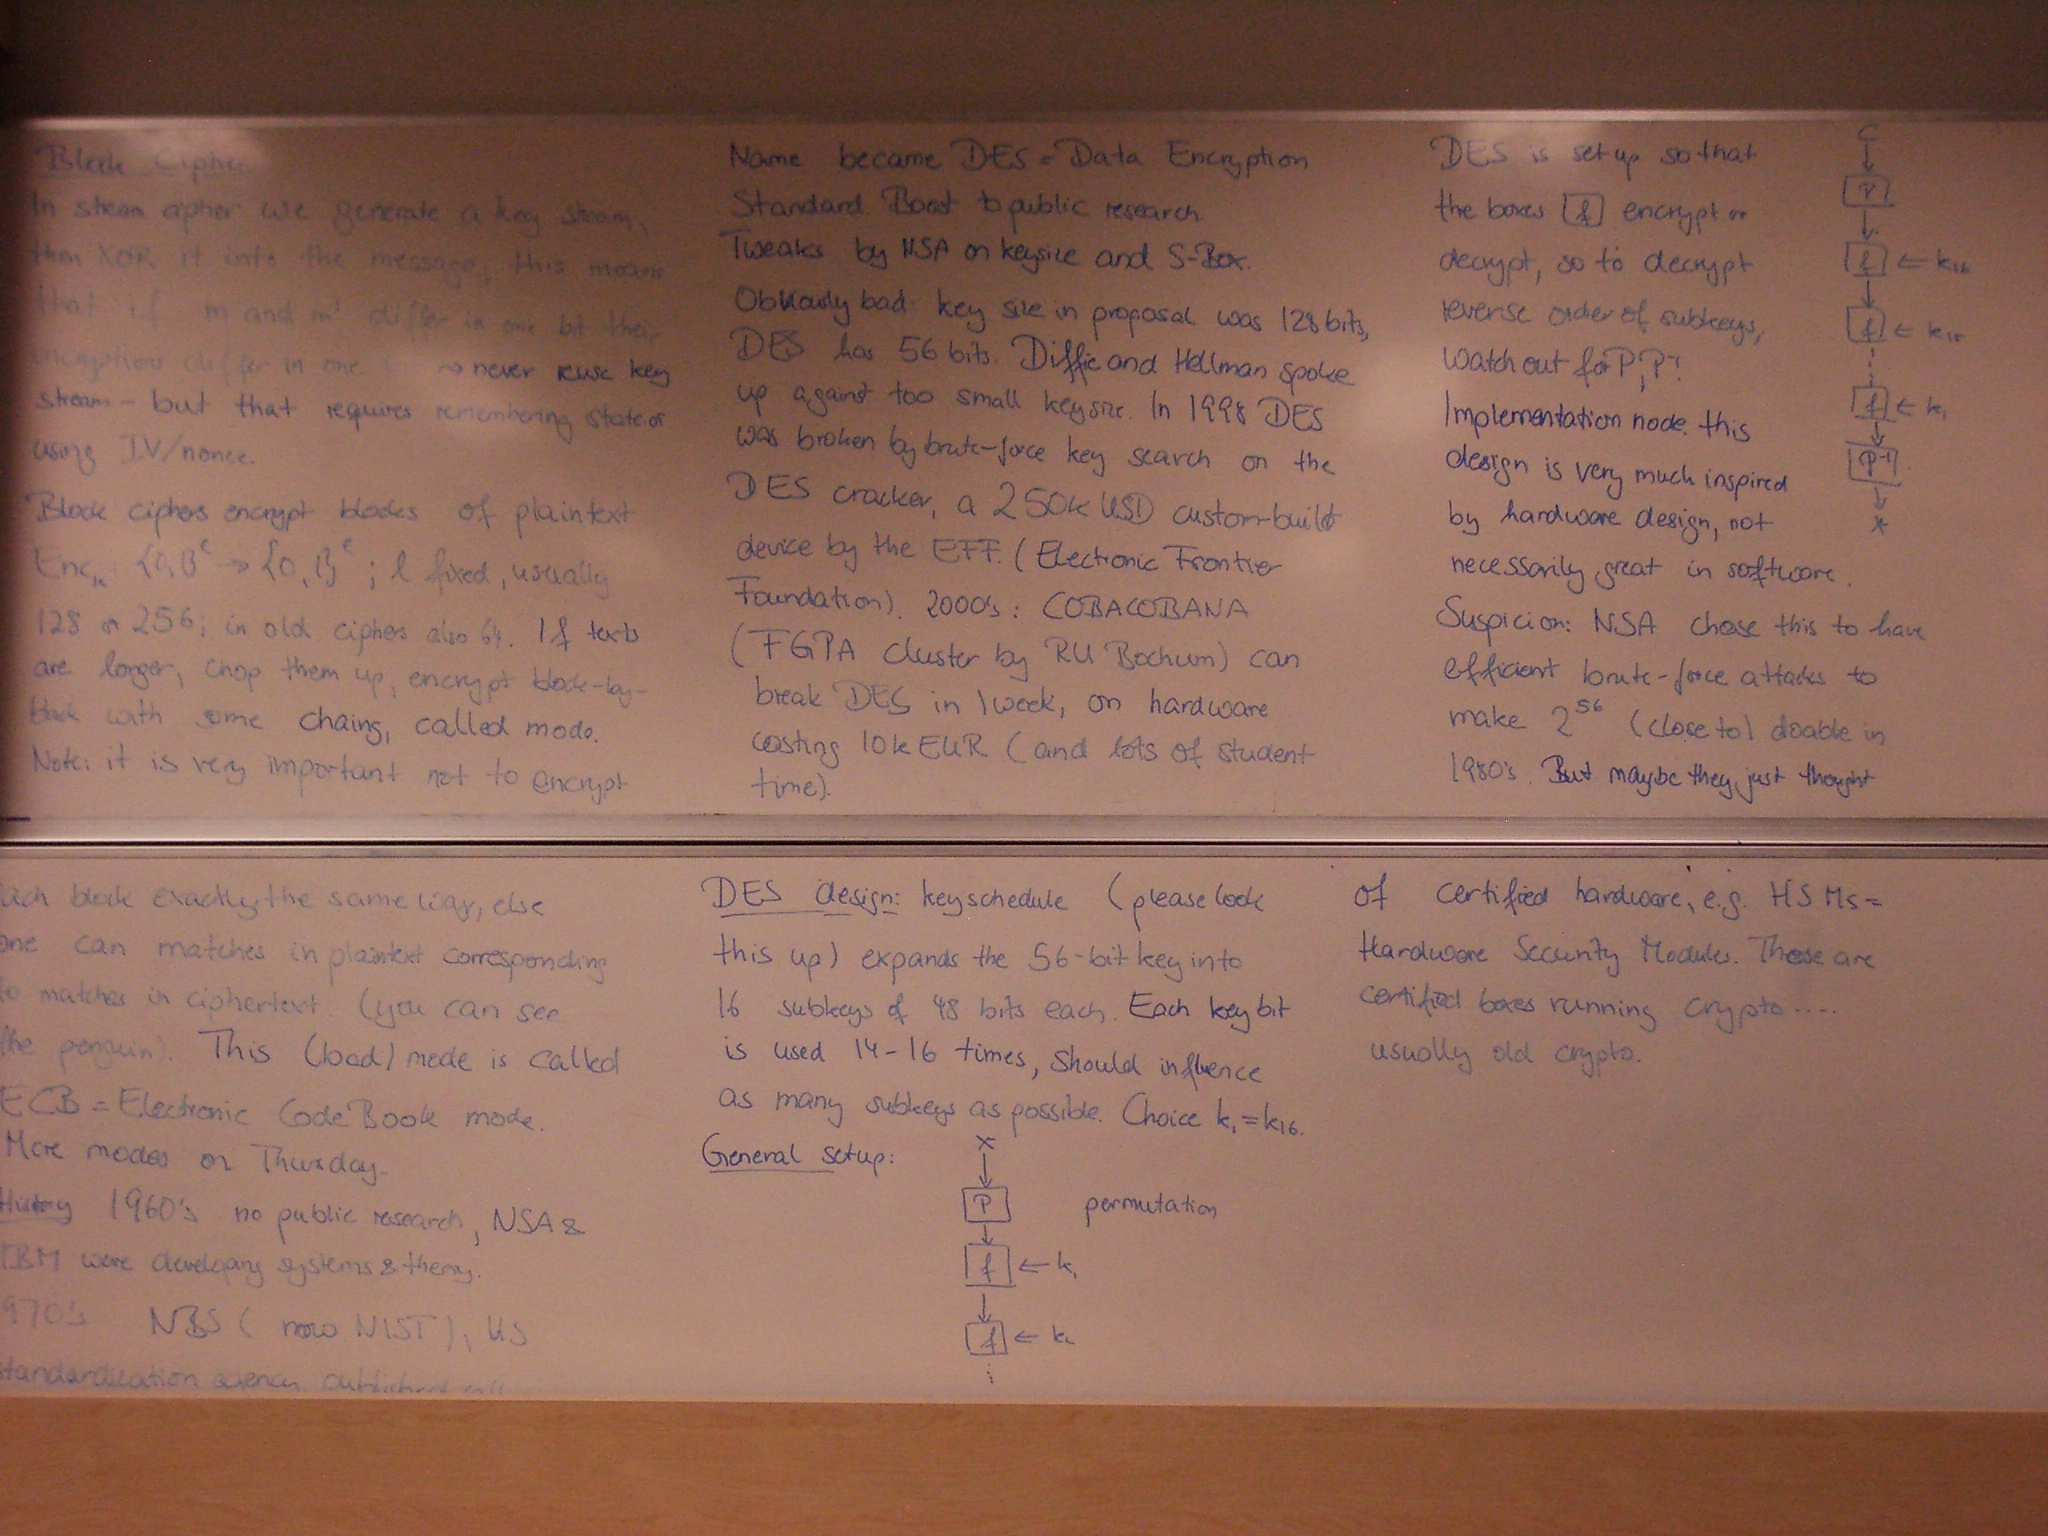 Block Cipher
In stream cipher we generate a key stream,
then XOR it into the message, this means
that if m and m' differ in one bit their
encryptions differ in one → never reuse key
stream - but that requires remembering state or
using IV/nonce.
Block ciphers encrypt blocks of plaintext
Enc_k: {0,1}^ℓ → {0,1}^ℓ ; ℓ fixed, usually
128 or 256; in old ciphers also 64. If texts
are longer, chop them up, encrypt block-by-
block with some chaing, called mode.
Note: it is very important not to encrypt
each block exactly the same way, else
one can matches in plaintext corresponding
to matches in ciphertext (you can see
the penguin). This (bad) mode is called
ECB = Electronic CodeBook mode.
More modes on Thursday.
History 1960's no public research, NSA &
IBM were developing systems & theory.
1970's NBS (now NIST), US
standardization agency published call
Name became DES = Data Encryption
Standard. Boost to public research.
Tweaks by NSA on keysize and S-Box.
Obviously bad: key size in proposal was 128 bits,
DES has 56 bits. Diffie and Hellman spoke
up against too small keysize. In 1998 DES
was broken by brute-force key search on the
DES cracker, a 250k USD custom-build
device by the EFF. (Electronic Frontier
Foundation). 2000's: COBACOBANA
(FGPA cluster by RU Bochum) can
break DES in 1 week, on hardware
costing 10k EUR (and lots of student
time).
DES design: keyschedule (please look
this up) expands the 56-bit key into
16 subkeys of 48 bits each. Each key bit
is used 14-16 times, should influence
as many subkeys as possible. Choice k₁=k₁₆.
General setup:
x
P permutation
f ← k₁
f ← k₂
⋮
DES is set up so that
the boxes f encrypt or
decrypt, so to decrypt
reverse order of subkeys,
watch out for P, P⁻¹!
Implementation node: this
design is very much inspired
by hardware design, not
necessarily great in software.
Suspicion: NSA chose this to have
efficient brute-force attacks to
make 2^56 (close to) doable in
1980's. But maybe they just thought
C
P
f ← k₁₆
f ← k₁₅
⋮
f ← k₁
P⁻¹
x
of certified hardware, e.g. HSMs =
Hardware Security Modules. These are
certified boxes running crypto....
usually old crypto.